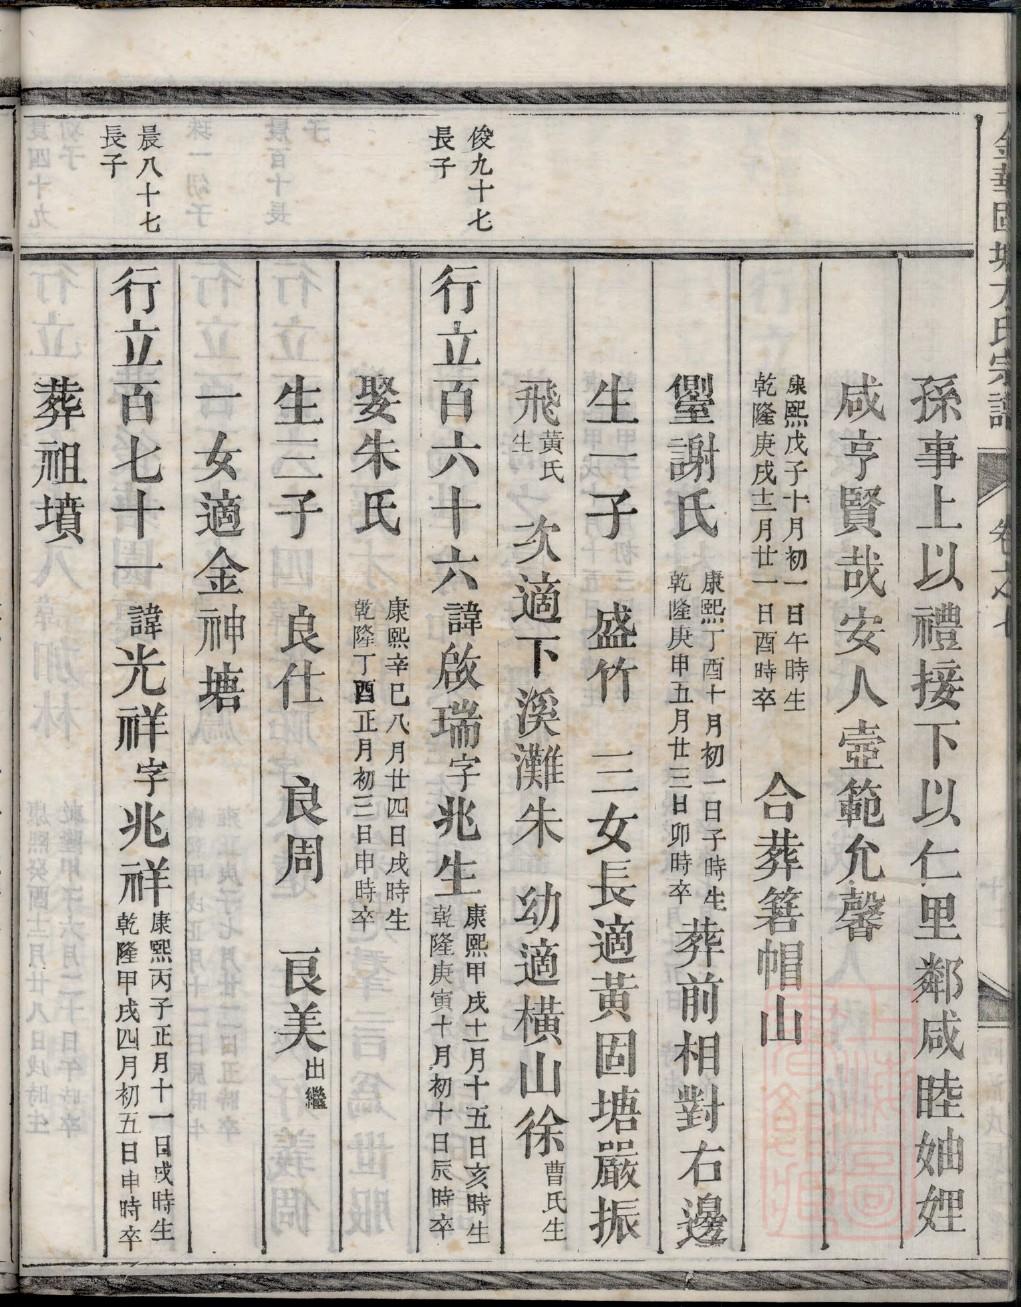 金華固塘方氏宗譜 卷之七
孫事上以禮接下以仁里鄰咸睦妯娌
咸亨賢哉安人壼範允馨
康熙戊子十月初一日午時生
乾隆庚戌十二月廿一日酉時卒
合葬箬帽山
謝氏
康熙丁酉十月初一日子時生
乾隆庚申五月廿三日卯時卒
葬前相對右邊
生一子 盛竹 三女長適黃固塘嚴振
飛黃氏生 次適下溪灘朱 幼適橫山徐曹氏生
俊九十七
長子
行立百六十六諱啟瑞字兆生
康熙甲戌十二月十五日亥時生
乾隆庚寅十月初十日辰時卒
娶朱氏
康熙辛巳八月廿四日戌時生
乾隆丁酉正月初三日申時卒
生三子 良仕 良周 良美出繼
一女適金神塘
晨八十七
長子
行立百七十一諱光祥字兆祥
康熙丙子正月十一日戌時生
乾隆甲戌四月初五日申時卒
葬祖墳